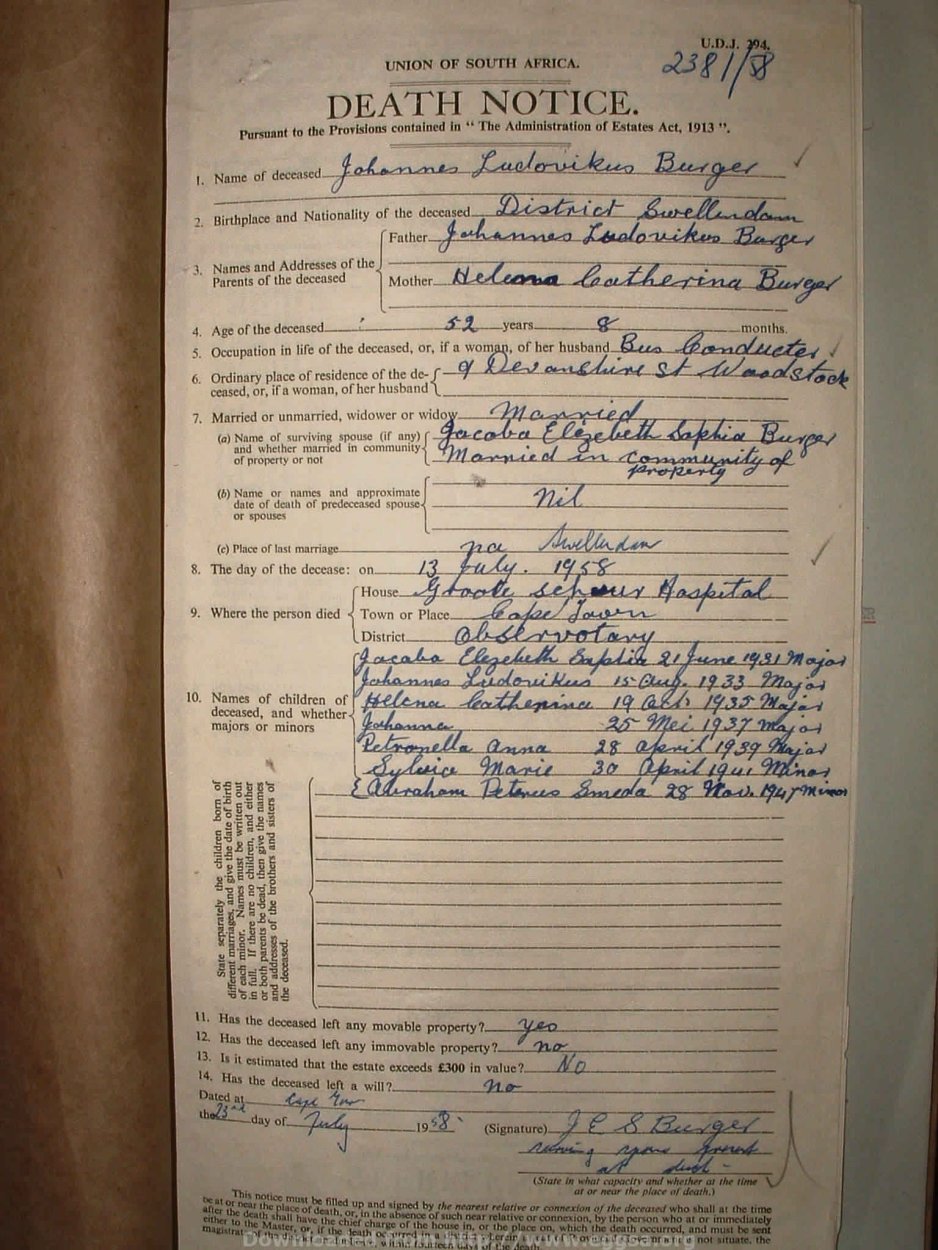 U.D.J. 294.
2381/58
UNION OF SOUTH AFRICA.
DEATH NOTICE.
Pursuant to the Provisions contained in " The Administration of Estates Act, 1913 ".
1. Name of deceased Johannes Ludovikus Burger
2. Birthplace and Nationality of the deceased District Swellendam
3. Names and Addresses of the Parents of the deceased
Father Johannes Ludovikus Burger
Mother Helena Catherina Burger
4. Age of the deceased 52 years 8 months.
5. Occupation in life of the deceased, or, if a woman, of her husband Bus Conducter
6. Ordinary place of residence of the deceased, or, if a woman, of her husband 9 Devonshire St Woodstock
7. Married or unmarried, widower or widow Married
(a) Name of surviving spouse (if any) and whether married in community of property or not
Jacoba Elezebeth Saphia Burger
Married in community of
property
(b) Name or names and approximate date of death of predeceased spouse or spouses
Nil
(c) Place of last marriage na Swellendam
8. The day of the decease: on 13 July. 1958
9. Where the person died
House Groote schuur Hospital
Town or Place Cape Town
District Observotary
10. Names of children of deceased, and whether majors or minors
Jacaba Elezebeth Saphia 21 June 1931 Major
Johannes Ludovikus 15 Aug. 1933 Major
Helena Catherina 19 Oct. 1935 Major
Johanna 25 Mei 1937 Major
Petronella Anna 28 April 1939 Major
Sylvia Marie 30 April 1941 Minor
Abraham Peterus Smeda 28 Nov. 1947 Minor
State separately the children born of
different marriages, and give the date of birth
of each minor. Names must be written out
in full. If there are no children, and either
or both parents be dead, then give the names
and addresses of the brothers and sisters of
the deceased.
11. Has the deceased left any movable property? yes
12. Has the deceased left any immovable property? no
13. Is it estimated that the estate exceeds £300 in value? No
14. Has the deceased left a will? no
Dated at Cape Town
the 23rd day of July 1958
(Signature) J E S Burger
spouse present
at death -
(State in what capacity and whether at the time
at or near the place of death.)
This notice must be filled up and signed by the nearest relative or connexion of the deceased who shall at the time
be at or near the place of death, or, in the absence of such near relative or connexion, by the person who at or immediately
after the death shall have the chief charge of the house in, or the place on, which the death occurred, and must be sent
either to the Master, or, if the death occurred in a district
Downloaded from http://www.eggsa.org